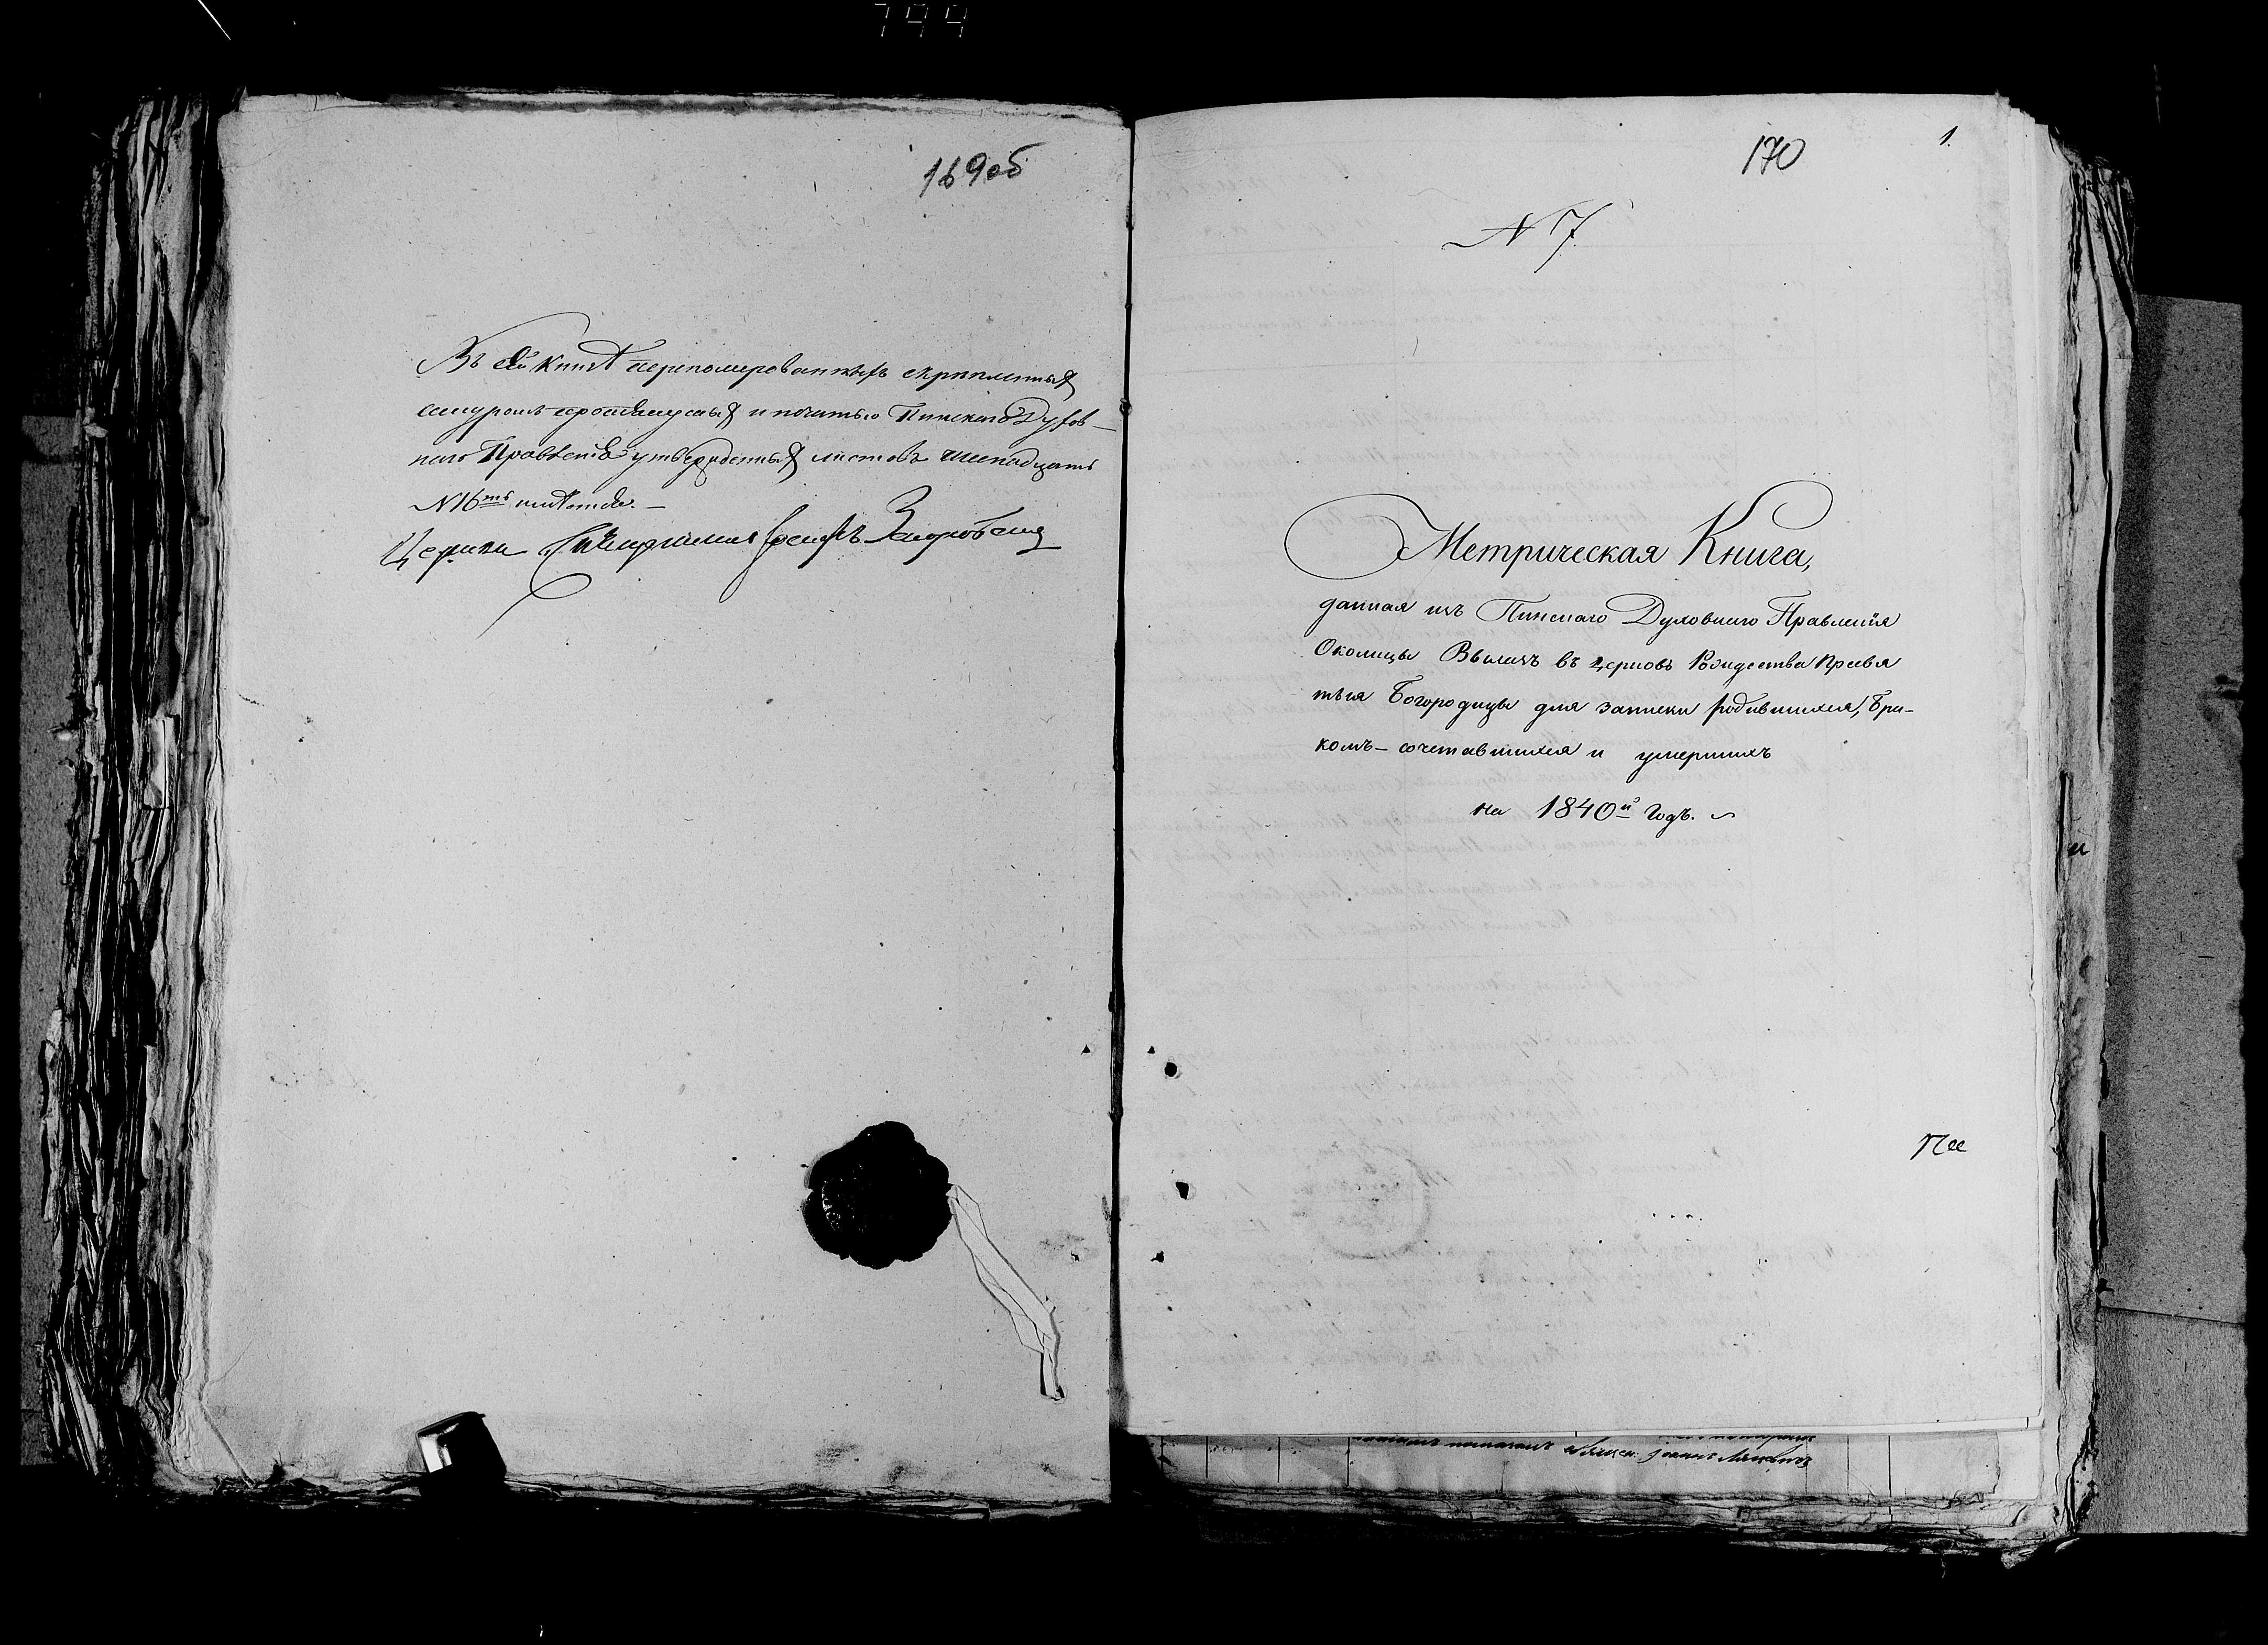 794
169об
Въ сей книгѣ перепомерованныхъ скрѣпленныхъ
шнуромъ протянутыхъ и печатью Пинскаго Духов-
наго Правленія утвержденныхъ листовъ шеснадцать
N 16ть имѣется. —
Церкви Іосифъ
170
1.
N 7.
Метрическая Книга,
данная изъ Пинскаго Духовнаго Правленія
Околицы Вылазъ въ церковь Рождества Пресвя
тыя Богородицы для записки родившихся, Бра-
комъ-сочетавшихся и умершихъ
на 1840й Годъ.